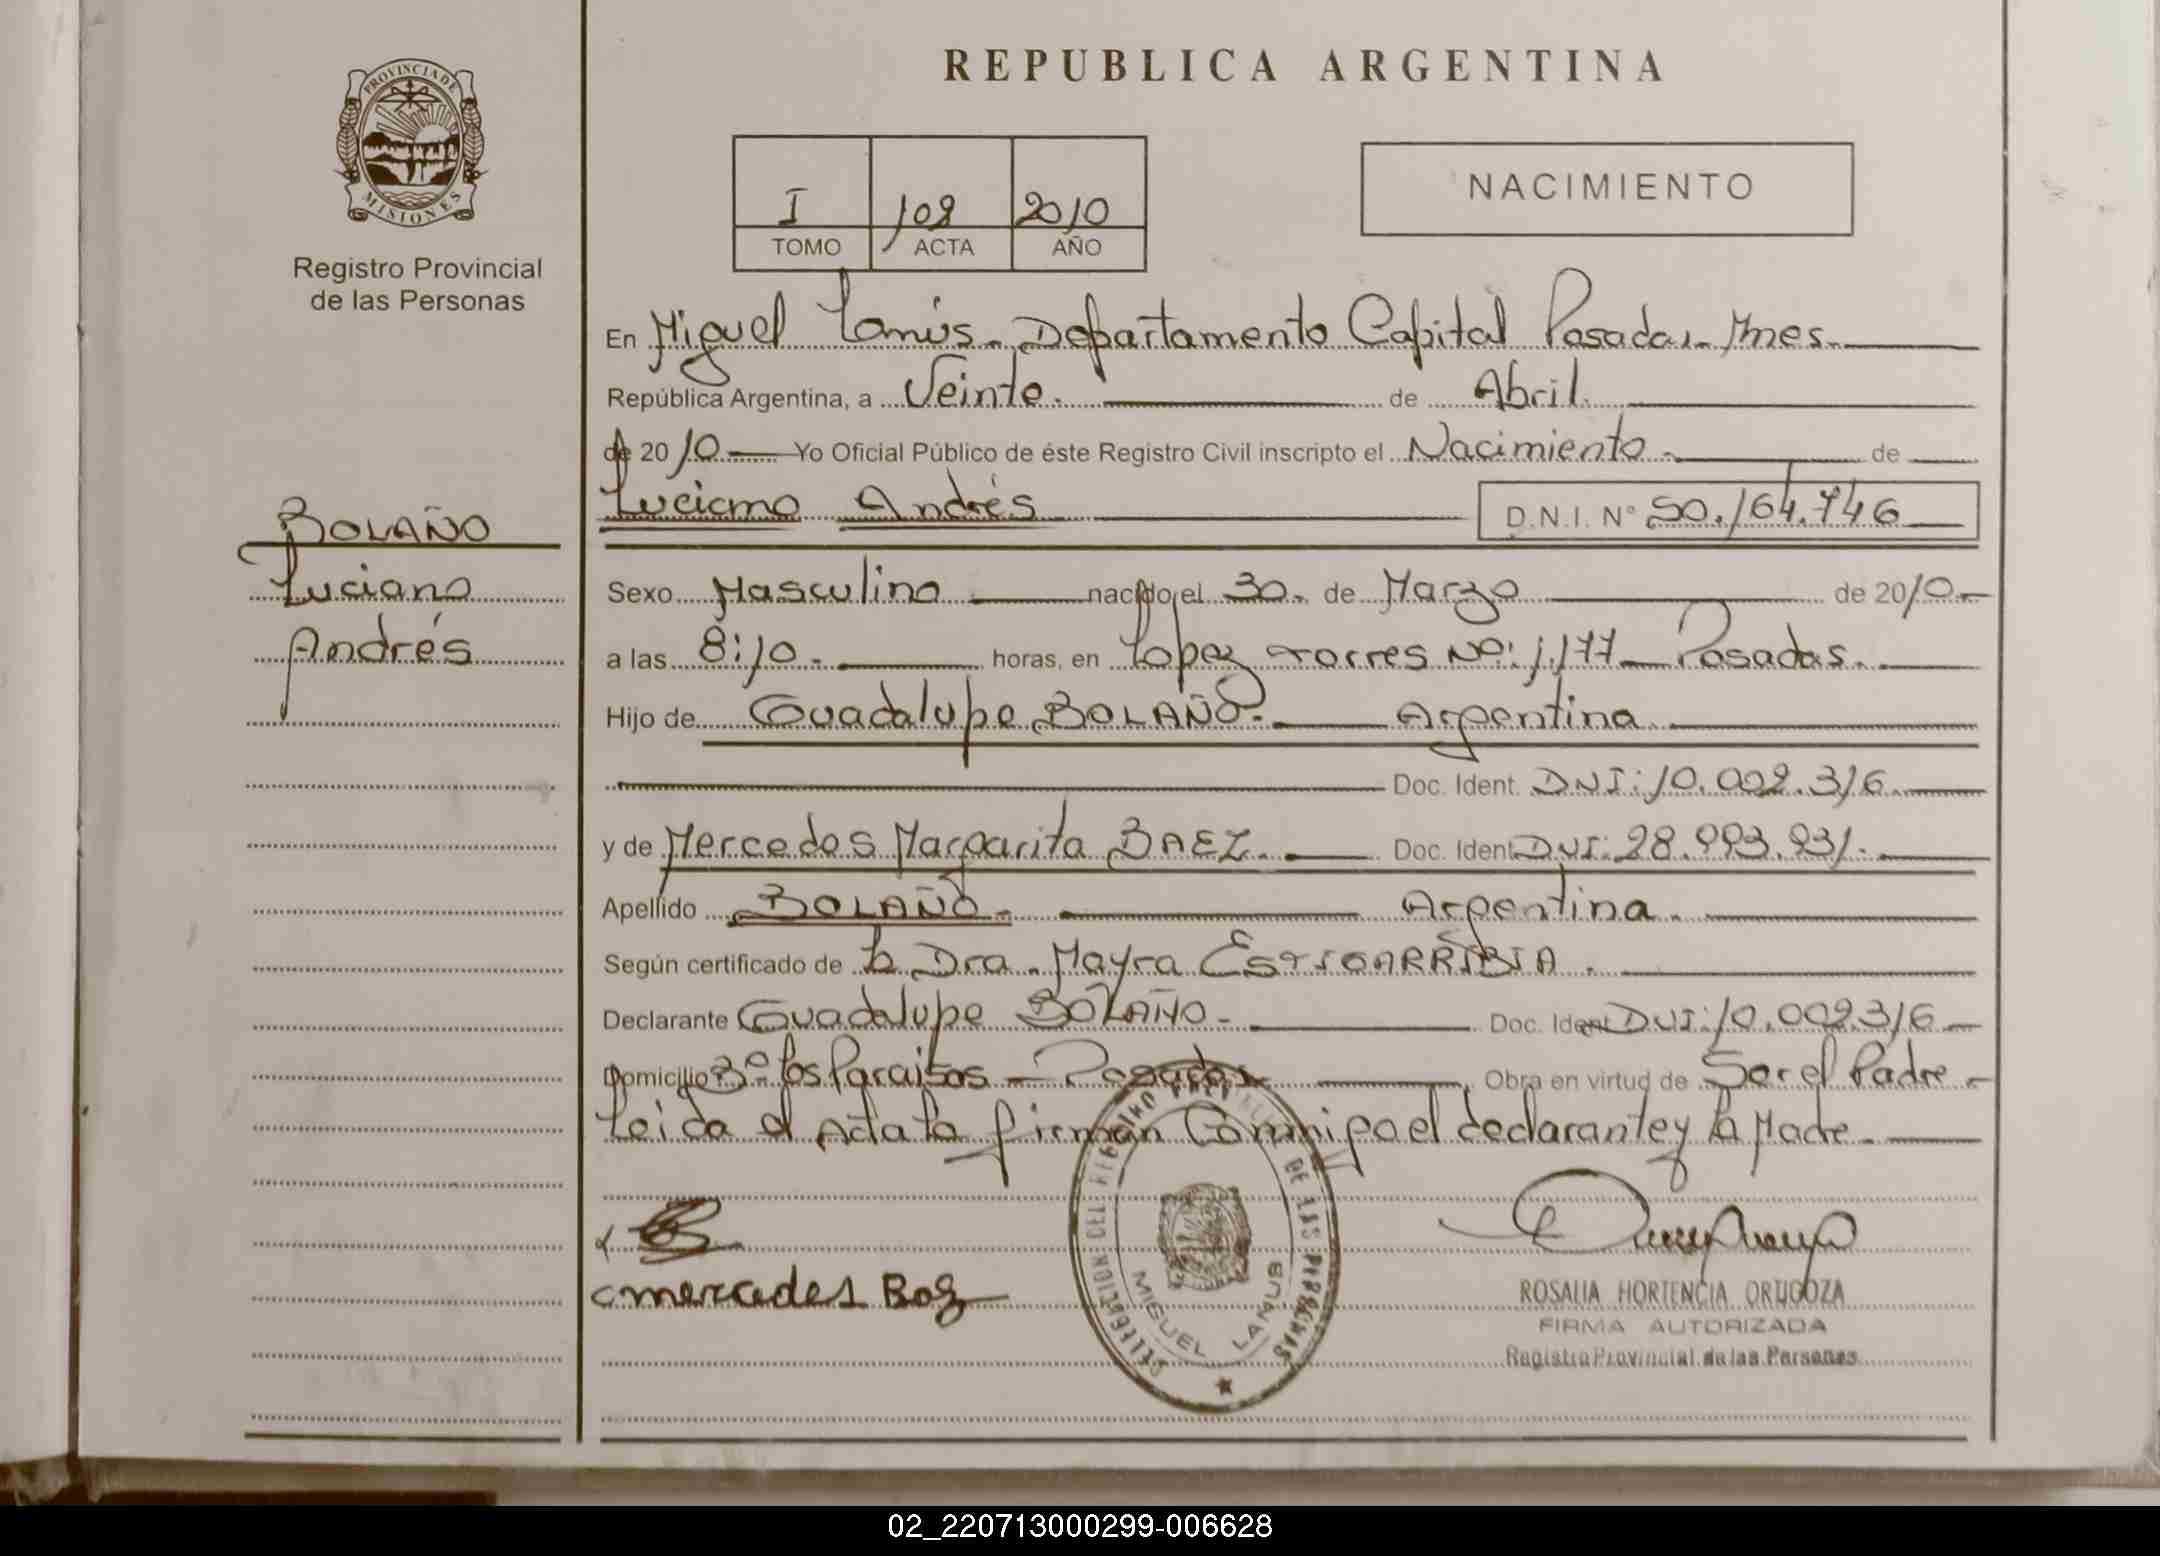 REPUBLICA ARGENTINA
PROVINCIA DE
MISIONES
Registro Provincial
de las Personas
I 108 2010
TOMO ACTA AÑO
NACIMIENTO
En Miguel Lanús. Departamento Capital Posadas. Mnes.
República Argentina, a Veinte. de Abril.
de 2010 Yo Oficial Público de éste Registro Civil inscripto el Nacimiento. de
Luciano Andrés D.N.I. Nº 50.164.746
BOLAÑO
Luciano
Andrés
Sexo Masculino nacido el 30. de Marzo de 2010
a las 8:10. horas, en Lopez Torres Nº: 1.177 Posadas.
Hijo de Guadalupe BOLAÑO. Argentina
Doc. Ident. DNI: 10.002.316
y de Mercedes Margarita BAEZ. Doc. Ident DNI: 28.993.931.
Apellido BOLAÑO. Argentina.
Según certificado de la Dra. Mayra ESTIGARRIBIA.
Declarante Guadalupe BOLAÑO Doc. Ident DNI: 10.002.316
Domicilio Bº los Paraisos - Posadas Obra en virtud de Ser el Padre
Leida el Acta la firman Conmigo el declarante y la Madre
mercedes Baez
DELEGACION DEL REGISTRO PROVINCIAL DE LAS PERSONAS
MIGUEL LANUS
ROSALIA HORTENCIA ORTIGOZA
FIRMA AUTORIZADA
Registro Provincial de las Personas
02_220713000299-006628